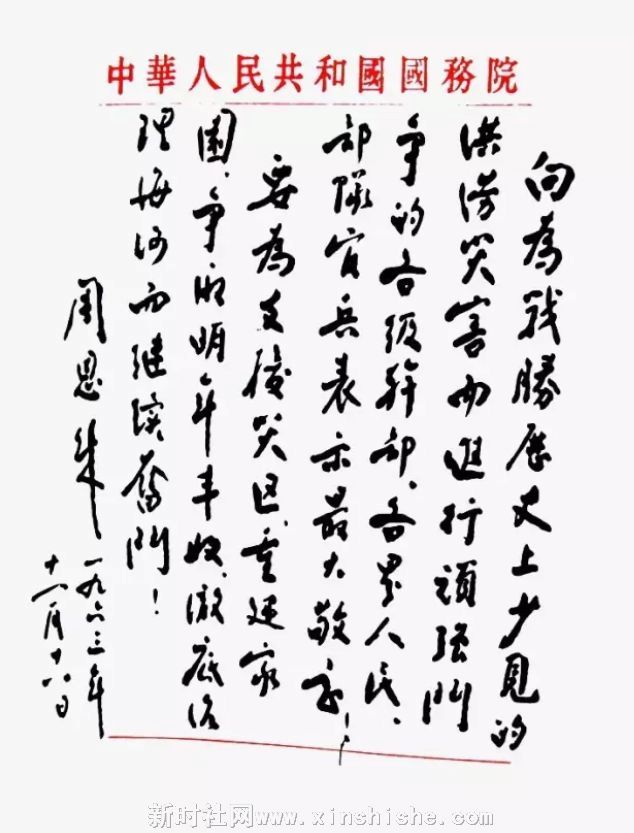 中華人民共和國國務院
向為战勝歷史上少見的
洪涝災害而進行頑强鬥
争的各级幹部、各界人民、
部隊官兵表示最大敬意!
要為支援災区、重建家
園、争取明年丰收、澈底治
理海河而继续奮鬥!
周恩来
一九六三年
十一月十六日
新时社网www.xinshishe.com